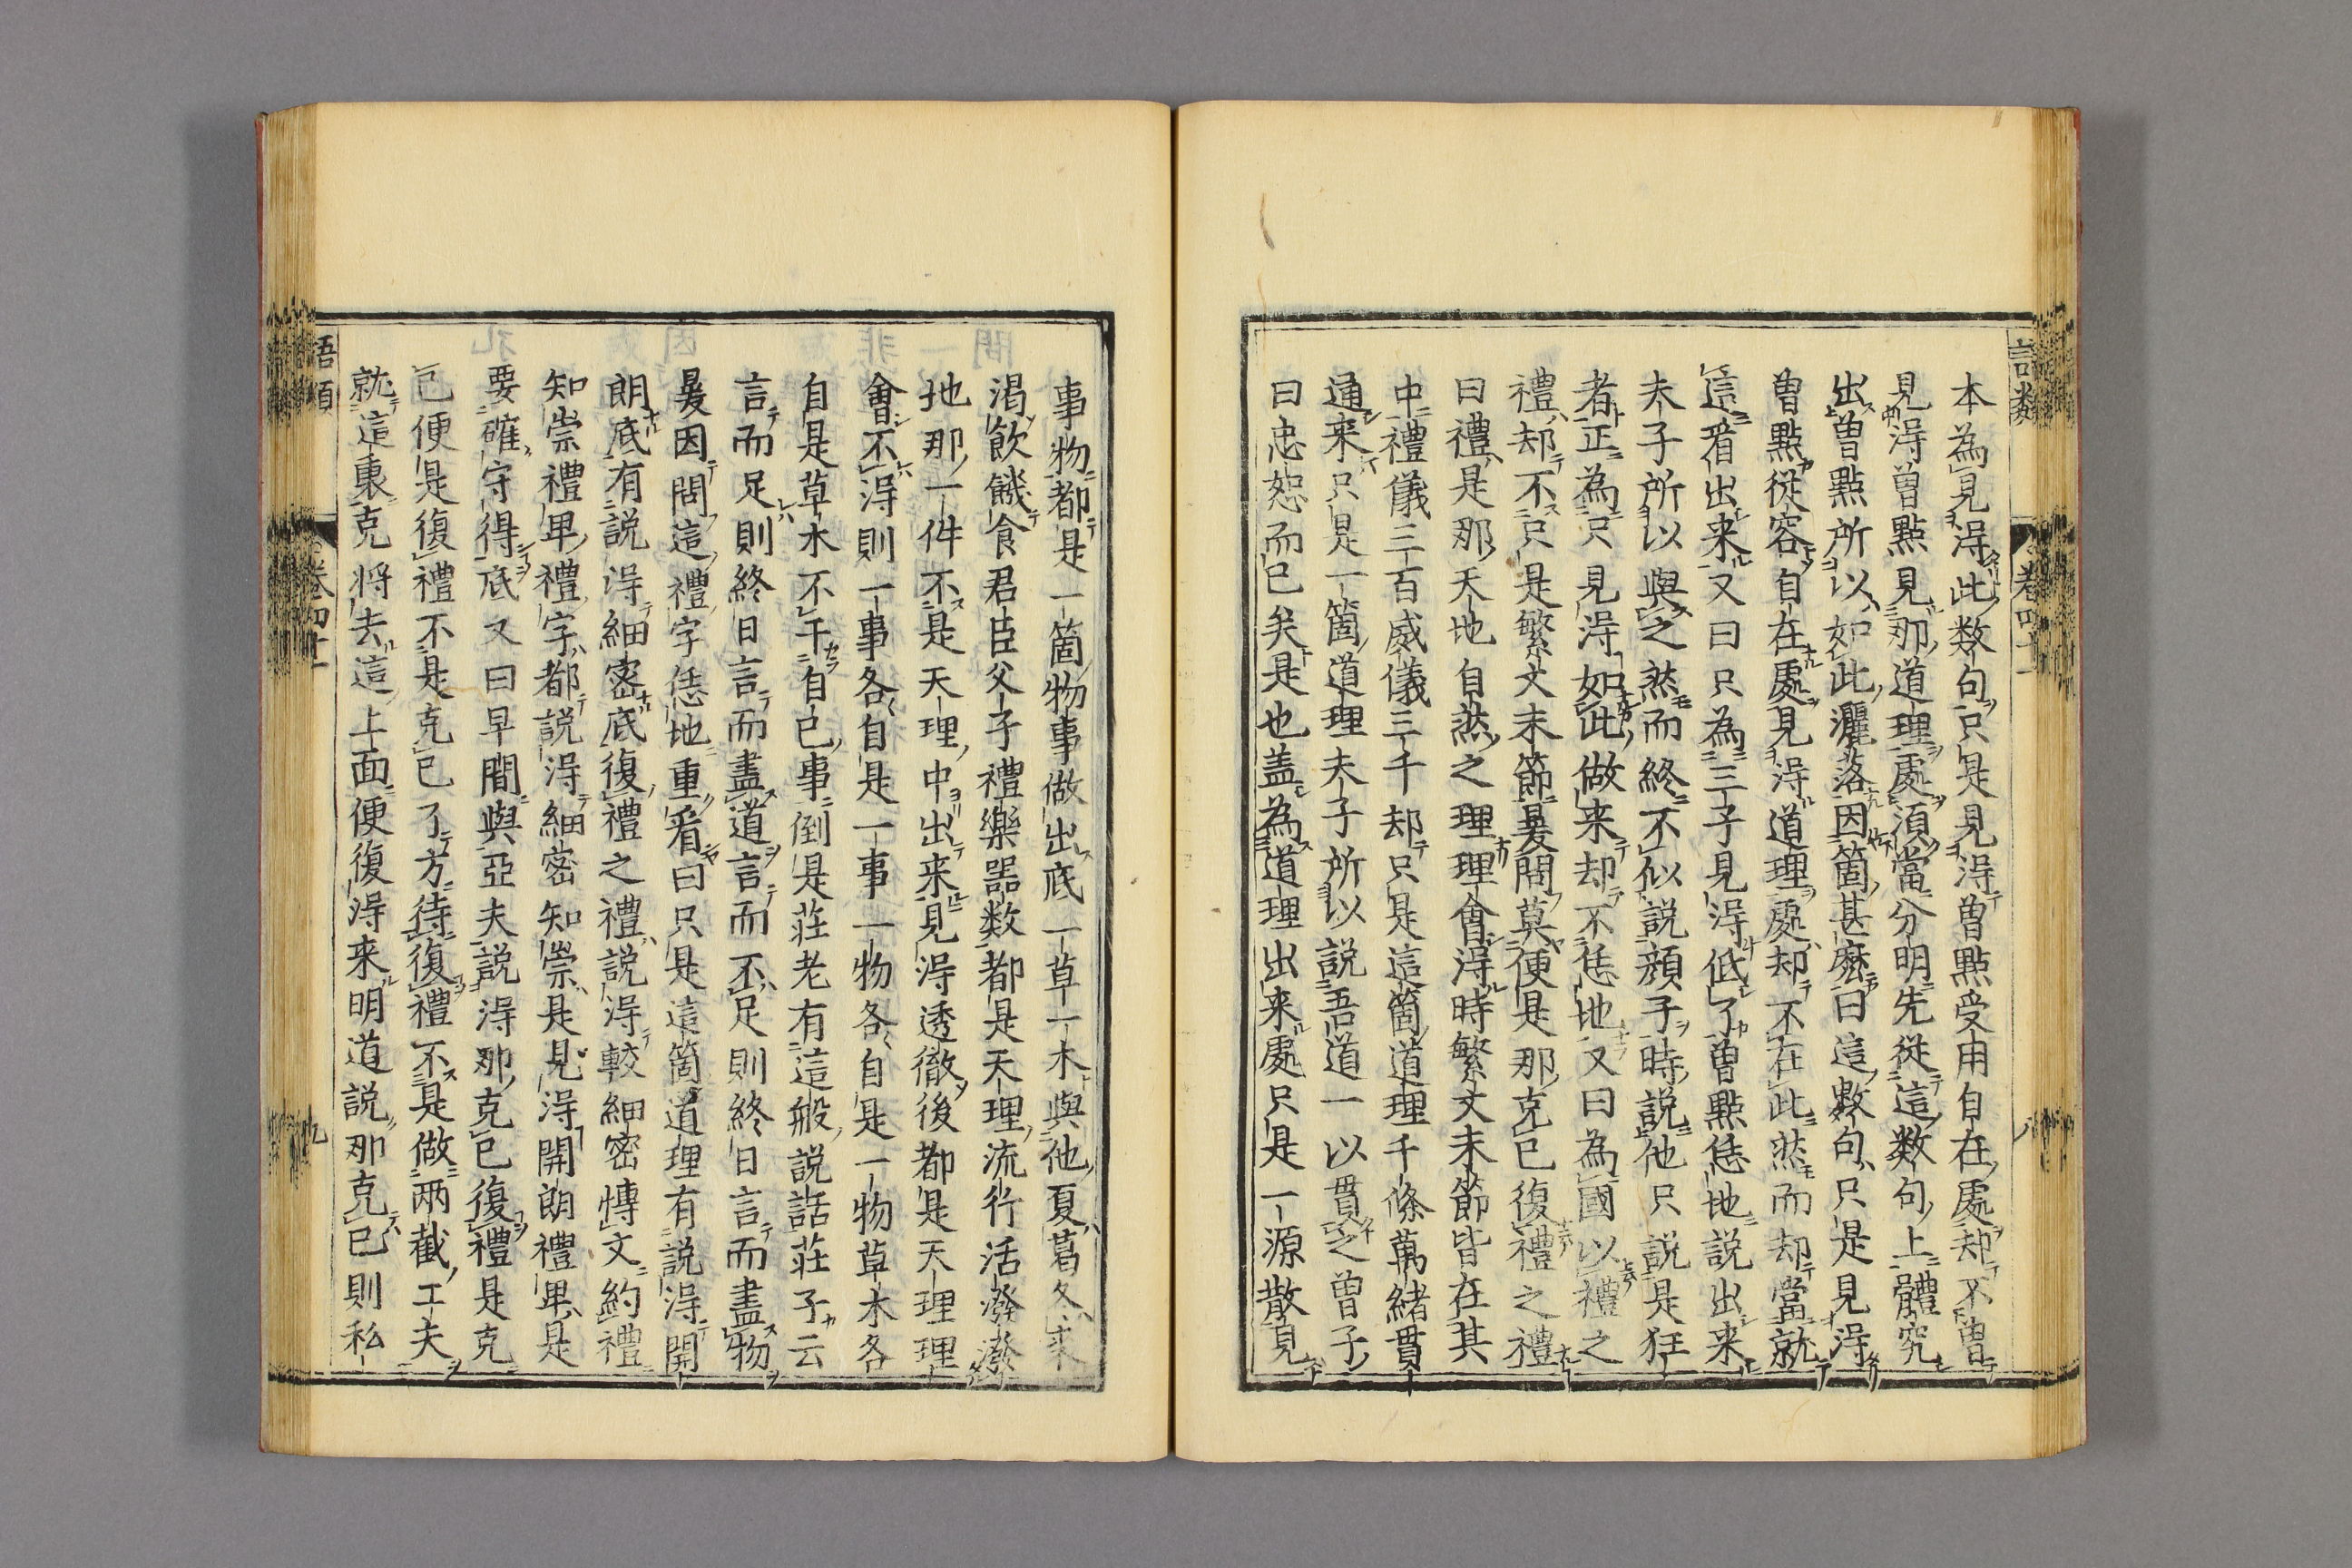 本為見得此数句只是見得曽點受用自在處却不曽
見得曽點見那道理處湏當分明先從這数句上體究
出曽點所以如此灑落因箇甚麽曰這數句只是見得
曽點從容自在處見得道理處却不在此然而却當就
這看出来又曰只為三子見得低了曽點恁地説出来
夫子所以與之然而終不似説顔子時説他只説是狂
者正為只見得如此做来却不恁地又曰為國以禮之
禮却不只是繁文末節㬰問莫便是那克己復禮之禮
曰禮是那天地自然之理理會得時繁文末節皆在其
中禮儀三百威儀三千却只是這箇道理千條萬緒貫
通来只是一箇道理夫子所以説吾道一以貫之曽子
曰忠恕而已矣是也盖為道理出来處只是一源散見
語類 卷四十一 八
事物都是一箇物事做出底一草一木與他夏葛冬裘
渴飲饑食君臣父子禮樂器数都是天理流行活潑潑
地那一件不是天理中出来見得透徹後都是天理理
會不得則一事各自是一事一物各自是一物草木各
自是草木不干自己事倒是莊老有這般説話莊子云
言而足則終日言而盡道言而不足則終日言而盡物
㬰因問這禮字恁地重看曰只是這箇道理有説得開
朗底有説得細密底復禮之禮説得較細密愽文約禮
知崇禮卑禮字都説得細密知崇是見得開朗禮卑是
要確守得底又曰早間與亞夫説得那克己復禮是克
己便是復禮不是克己了方待復禮不是做兩截工夫
就這裏克将去這上面便復得来明道説那克己則私
語類 卷四十一 九